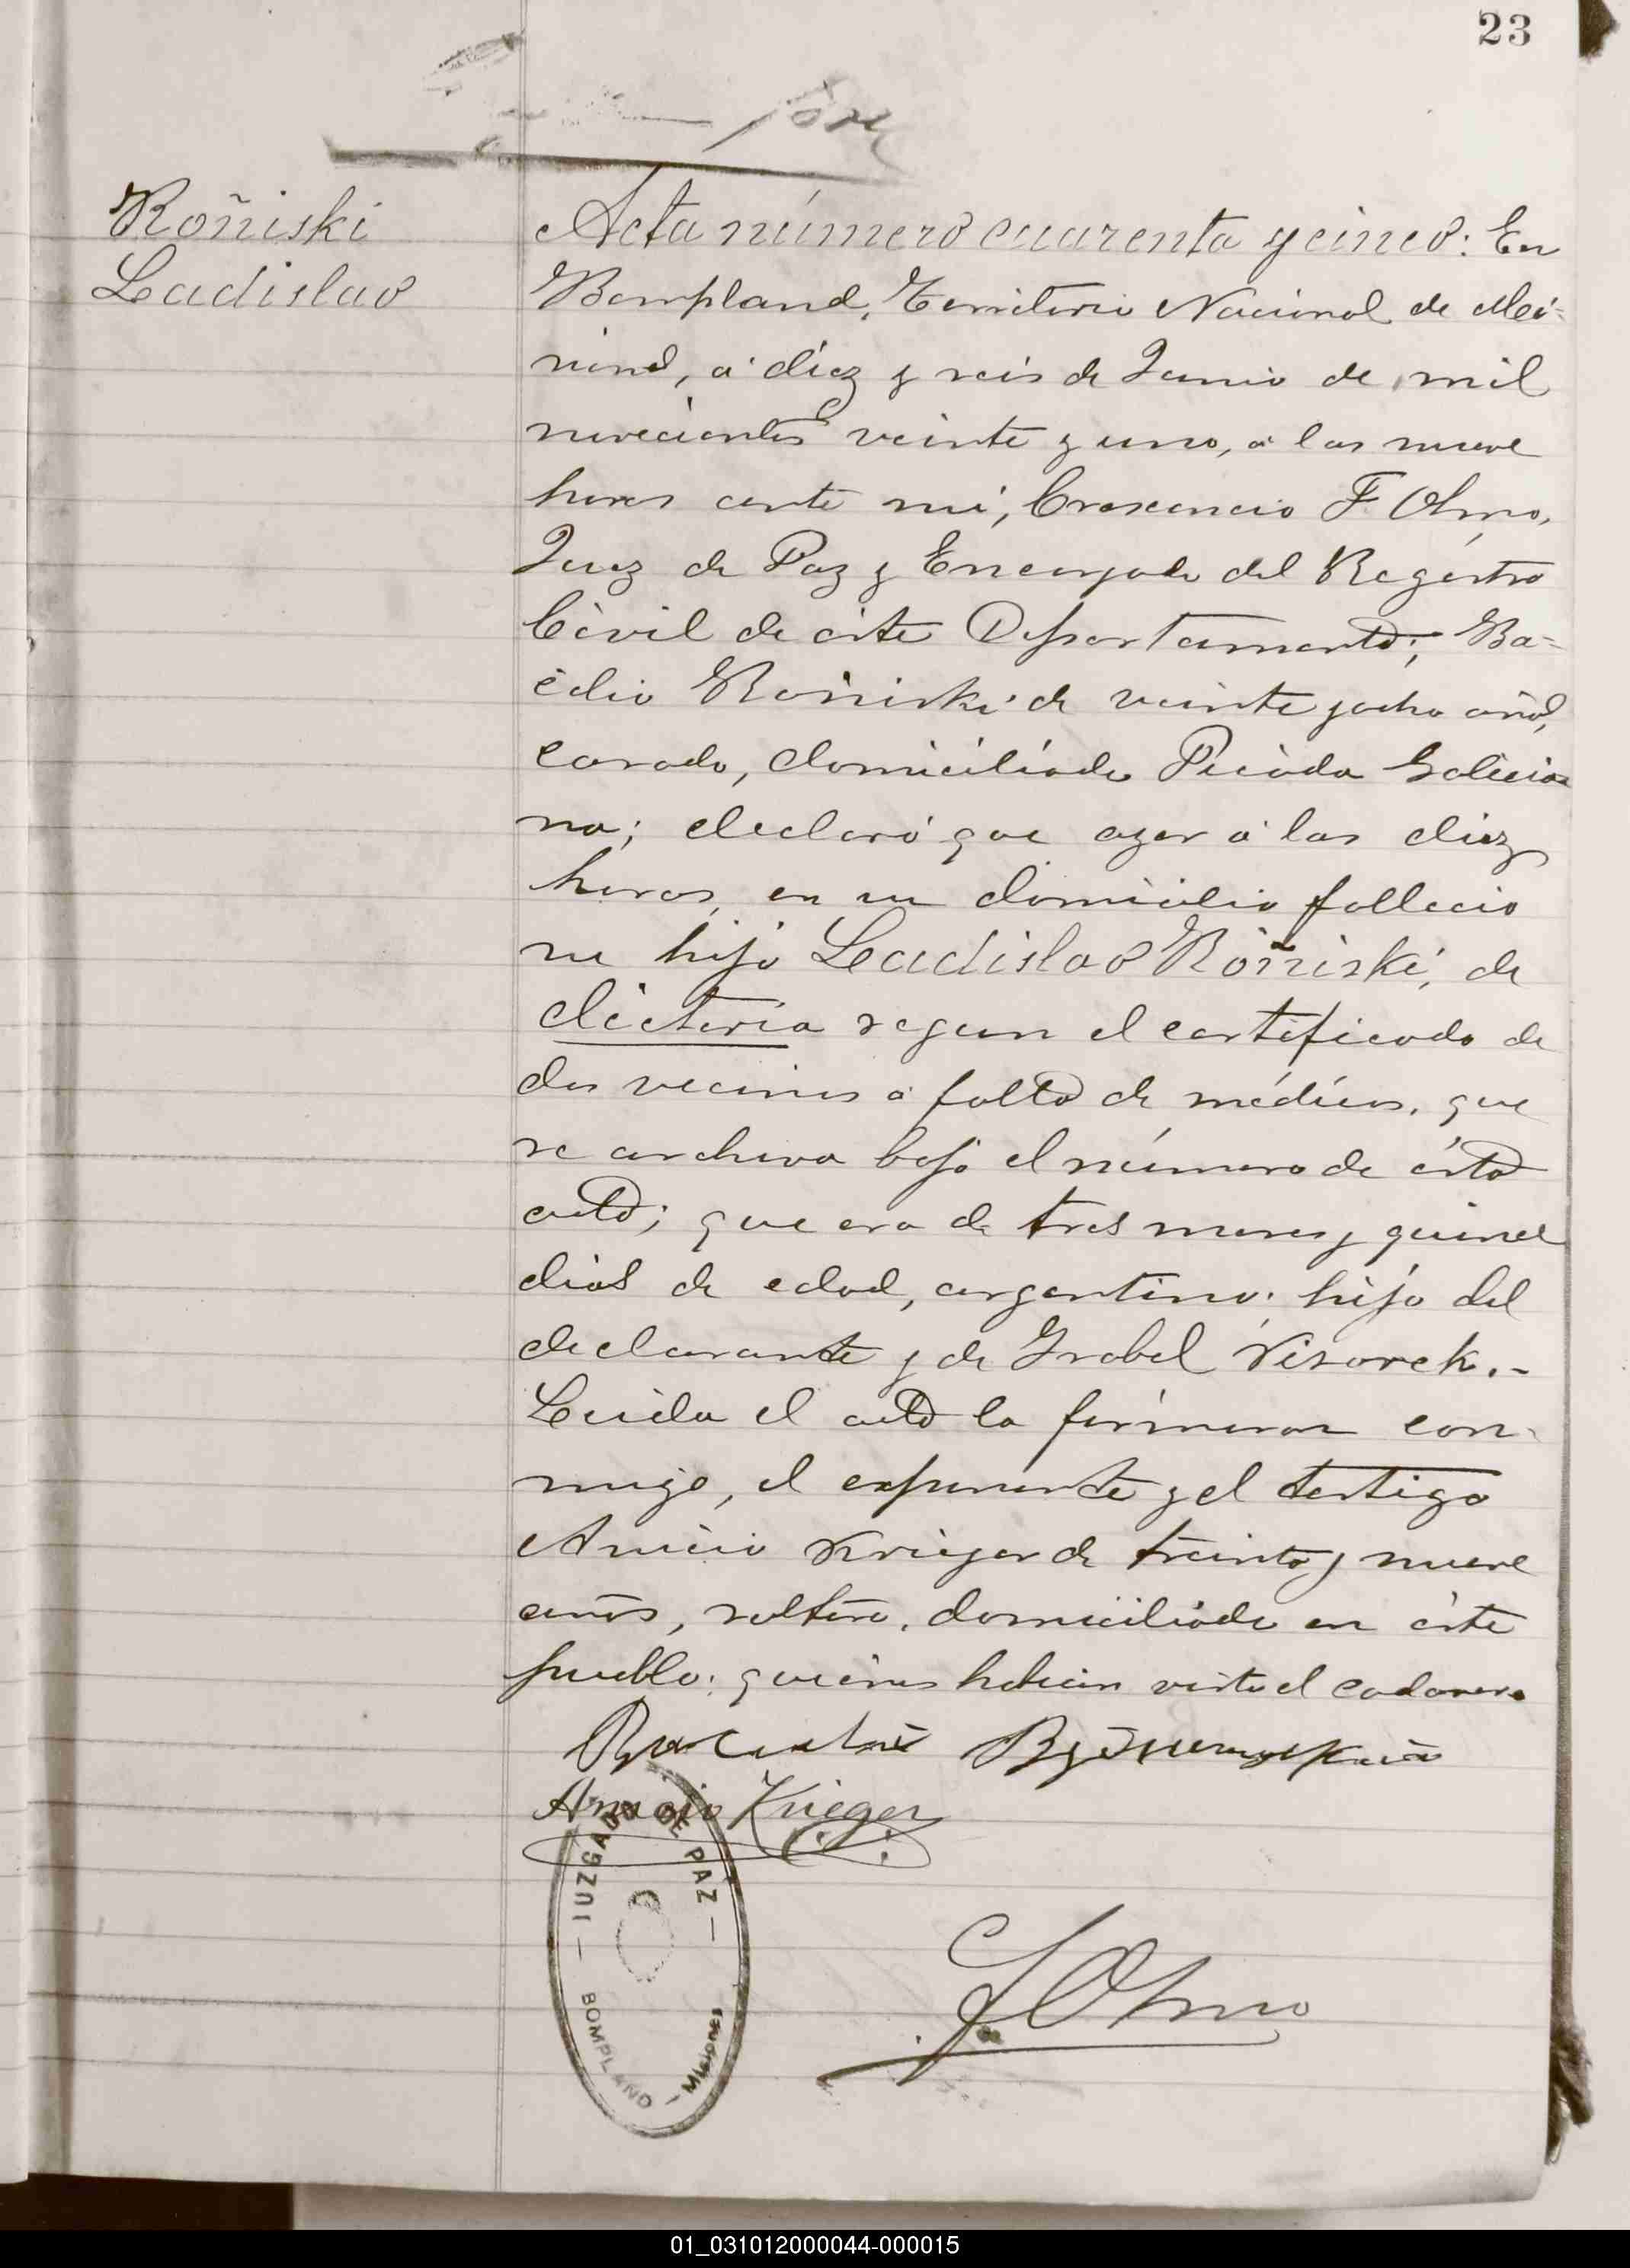 23
Roñiski
Ladislao
Acta número cuarenta y cinco: En
Bompland, Territorio Nacional de Mi-
siones, á diez y seis de Junio de mil
novecientos veinte y uno, á las nueve
horas ante mí, Crescencio F. Olmo,
Juez de Paz y Encargado del Registro
Civil de éste Departamento; Ba-
cilio Roñiski de veinte y ocho años,
casado, domiciliado Picada Galicia-
na; declaró que ayer á las diez
horas, en su domicilio falleció
su hijo Ladislao Roñiski, de
dicteria segun el certificado de
dos vecinos á falta de médicos, que
se archiva bajo el número de ésta
acta; que era de tres meses y quince
dias de edad, argentino, hijo del
declarante y de Isabel Visorek.-
Leida el acta la firmaron con-
migo, el exponente y el testigo
Anicio Krieger de treinta y nueve
años, soltero, domiciliado en éste
pueblo; quienes habian visto el cadaver.
Anicio Krieger
JUZGADO DE PAZ
BOMPLAND - Misiones
F Olmo
01_031012000044-000015